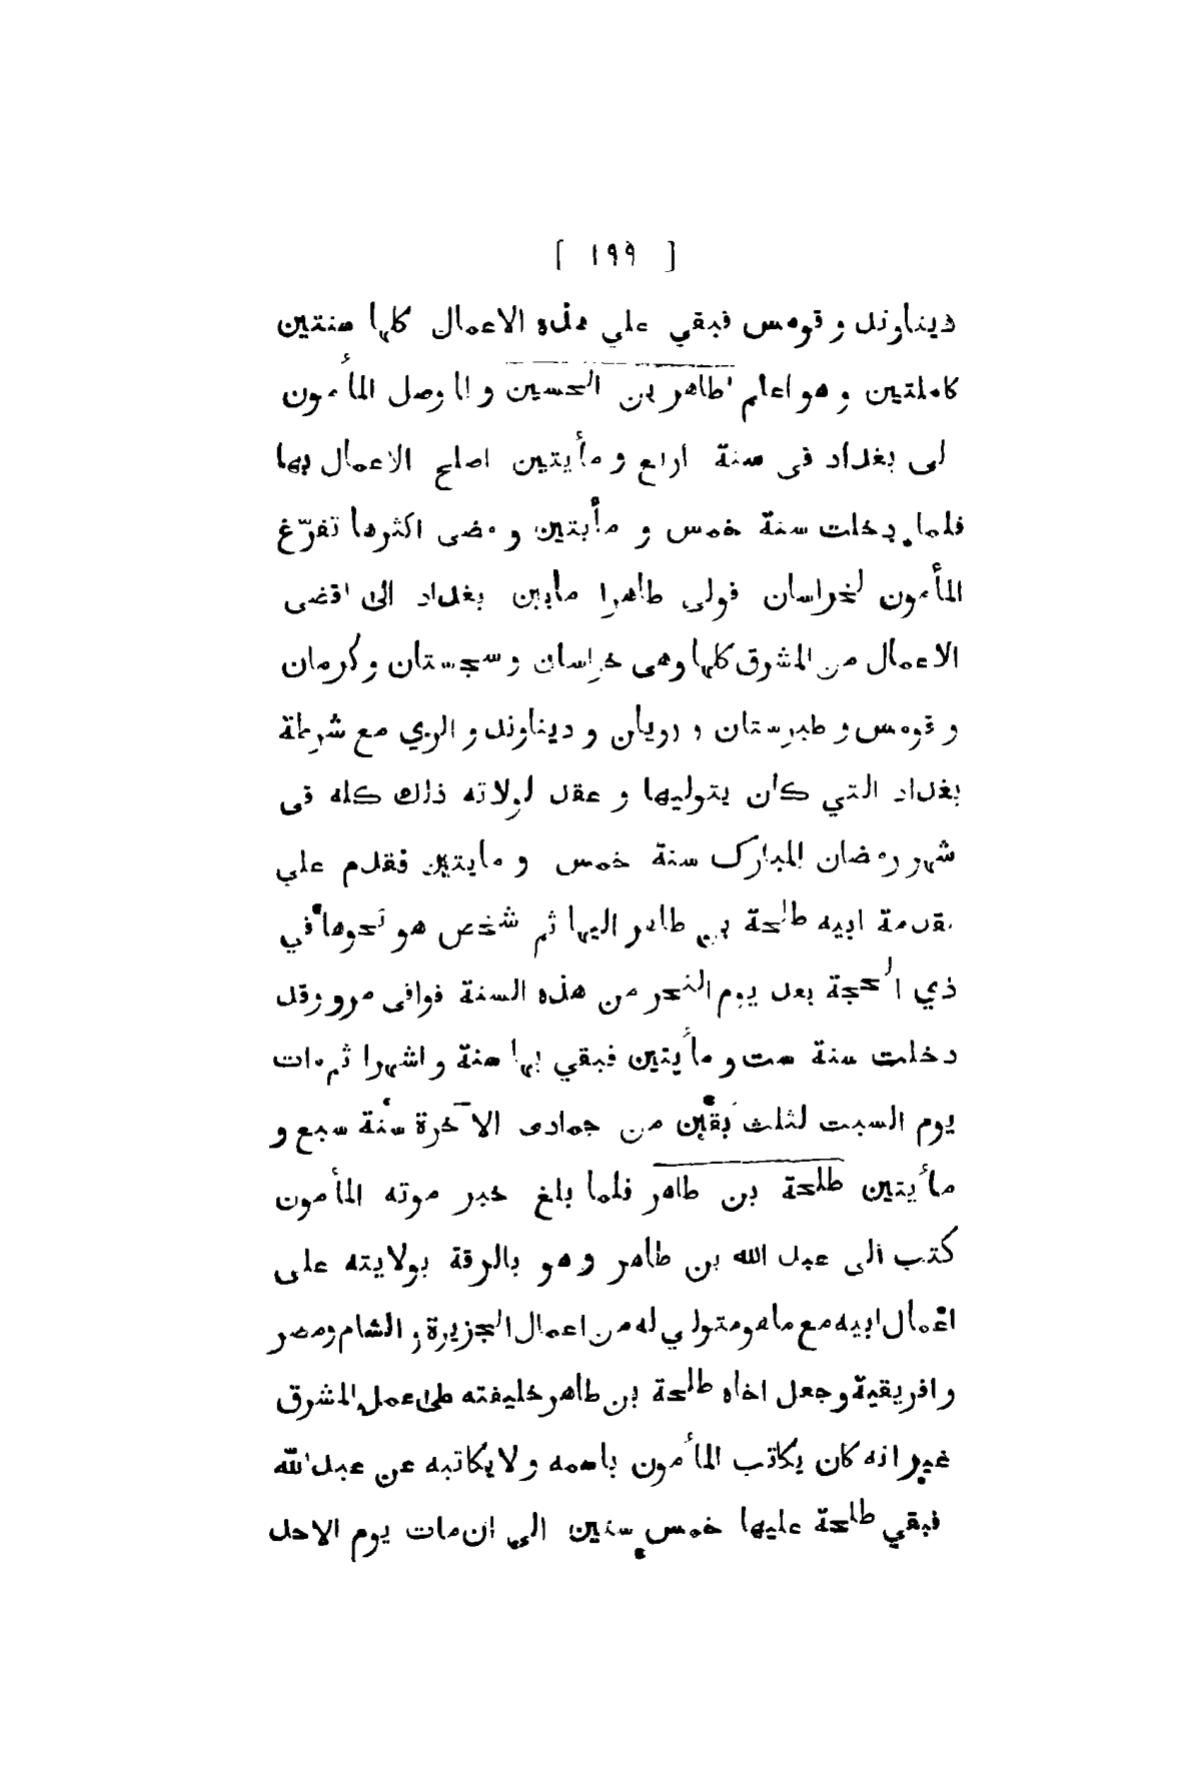 [ ١٩٩ ]
ديناوند و قومس فبقي علي هذه الاعمال كلها سنتين
كاملتين و هو اعلم طاهر بن الحسين و لما وصل المأمون
لى بغداد فى سنة اربع و مأيتين اصلح الاعمال بها
فلما دخلت سنة خمس و مأيتين و مضى اكثرها تفرّغ
المأمون لخراسان فولي طاهرا مابين بغداد الى اقضى
الاعمال من المشرق كلها وهى خراسان و سجستان و كرمان
و قومس و طبرستان و رويان و ديناوند و الري مع شرطة
بغداد التي كان يتوليها و عقد لولاته ذلك كله فى
شهر رمضان المبارك سنة خمس و مايتين فقدم علي
مقدمة ابيه طلحة بن طاهر اليها ثم شخص هو نحوها في
ذي الحجة بعد يوم النحر من هذه السنة فوافى مرو وقد
دخلت سنة ست و مأيتين فبقي بها سنة و اشهرا ثم مات
يوم السبت لثلث بقين من جمادى الآخرة سنة سبع و
مأيتين طلحة بن طاهر فلما بلغ خبر موته المأمون
كتب الى عبد الله بن طاهر و هو بالرقة بولايته على
اعمال ابيه مع ما هو متولي له من اعمال الجزيرة و الشام و مصر
و افريقية و جعل اخاه طلحة بن طاهر خليفته على عمل المشرق
غير انه كان يكاتب المأمون باسمه و لا يكاتبه عن عبد الله
فبقي طلحة عليها خمس سنين الى ان مات يوم الاحد